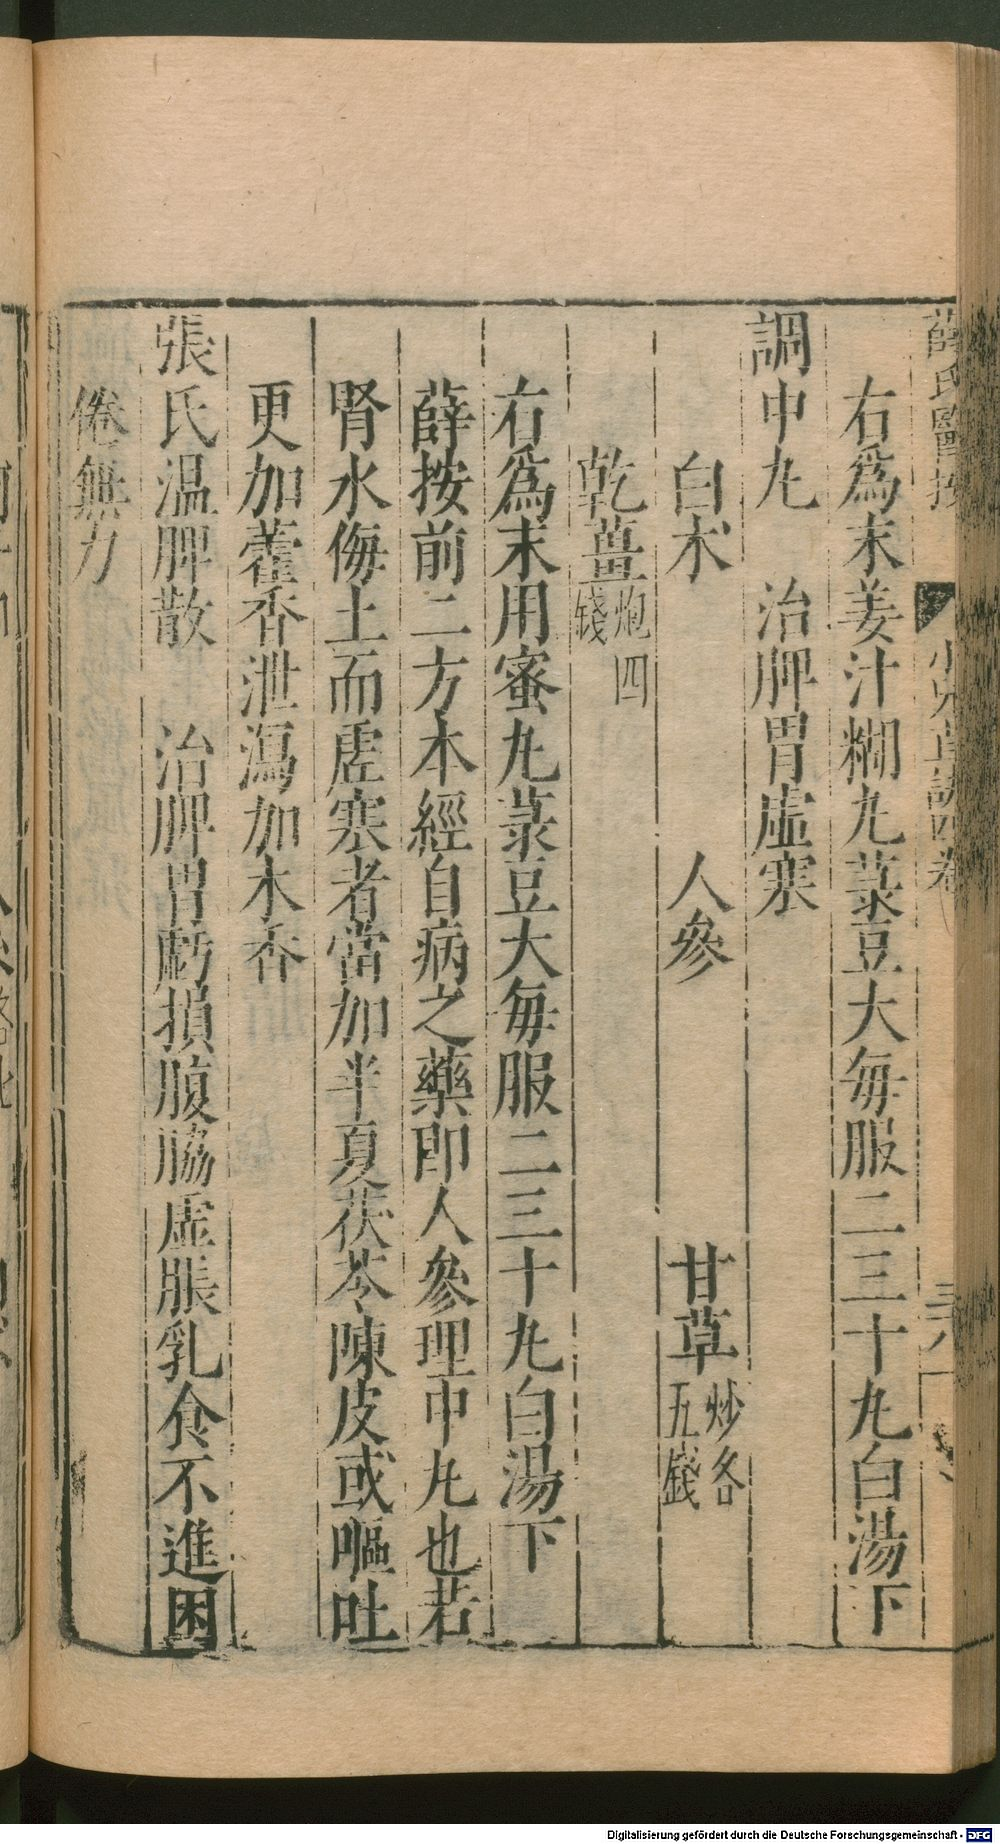 薛氏醫按 小兒直訣四卷 三八
右爲末姜汁糊丸菉豆大每服二三十丸白湯下
調中丸 治脾胃虛寒
白朮 人參 甘草炒各五錢
乾薑炮四錢
右爲末用蜜丸菉豆大每服二三十丸白湯下
薛按前二方本經自病之藥即人參理中丸也若
腎水侮土而虛寒者當加半夏茯苓陳皮或嘔吐
更加藿香泄瀉加木香
張氏温脾散 治脾胃虧損腹脇虛脹乳食不進困
倦無力
Digitalisierung gefördert durch die Deutsche Forschungsgemeinschaft - DFG